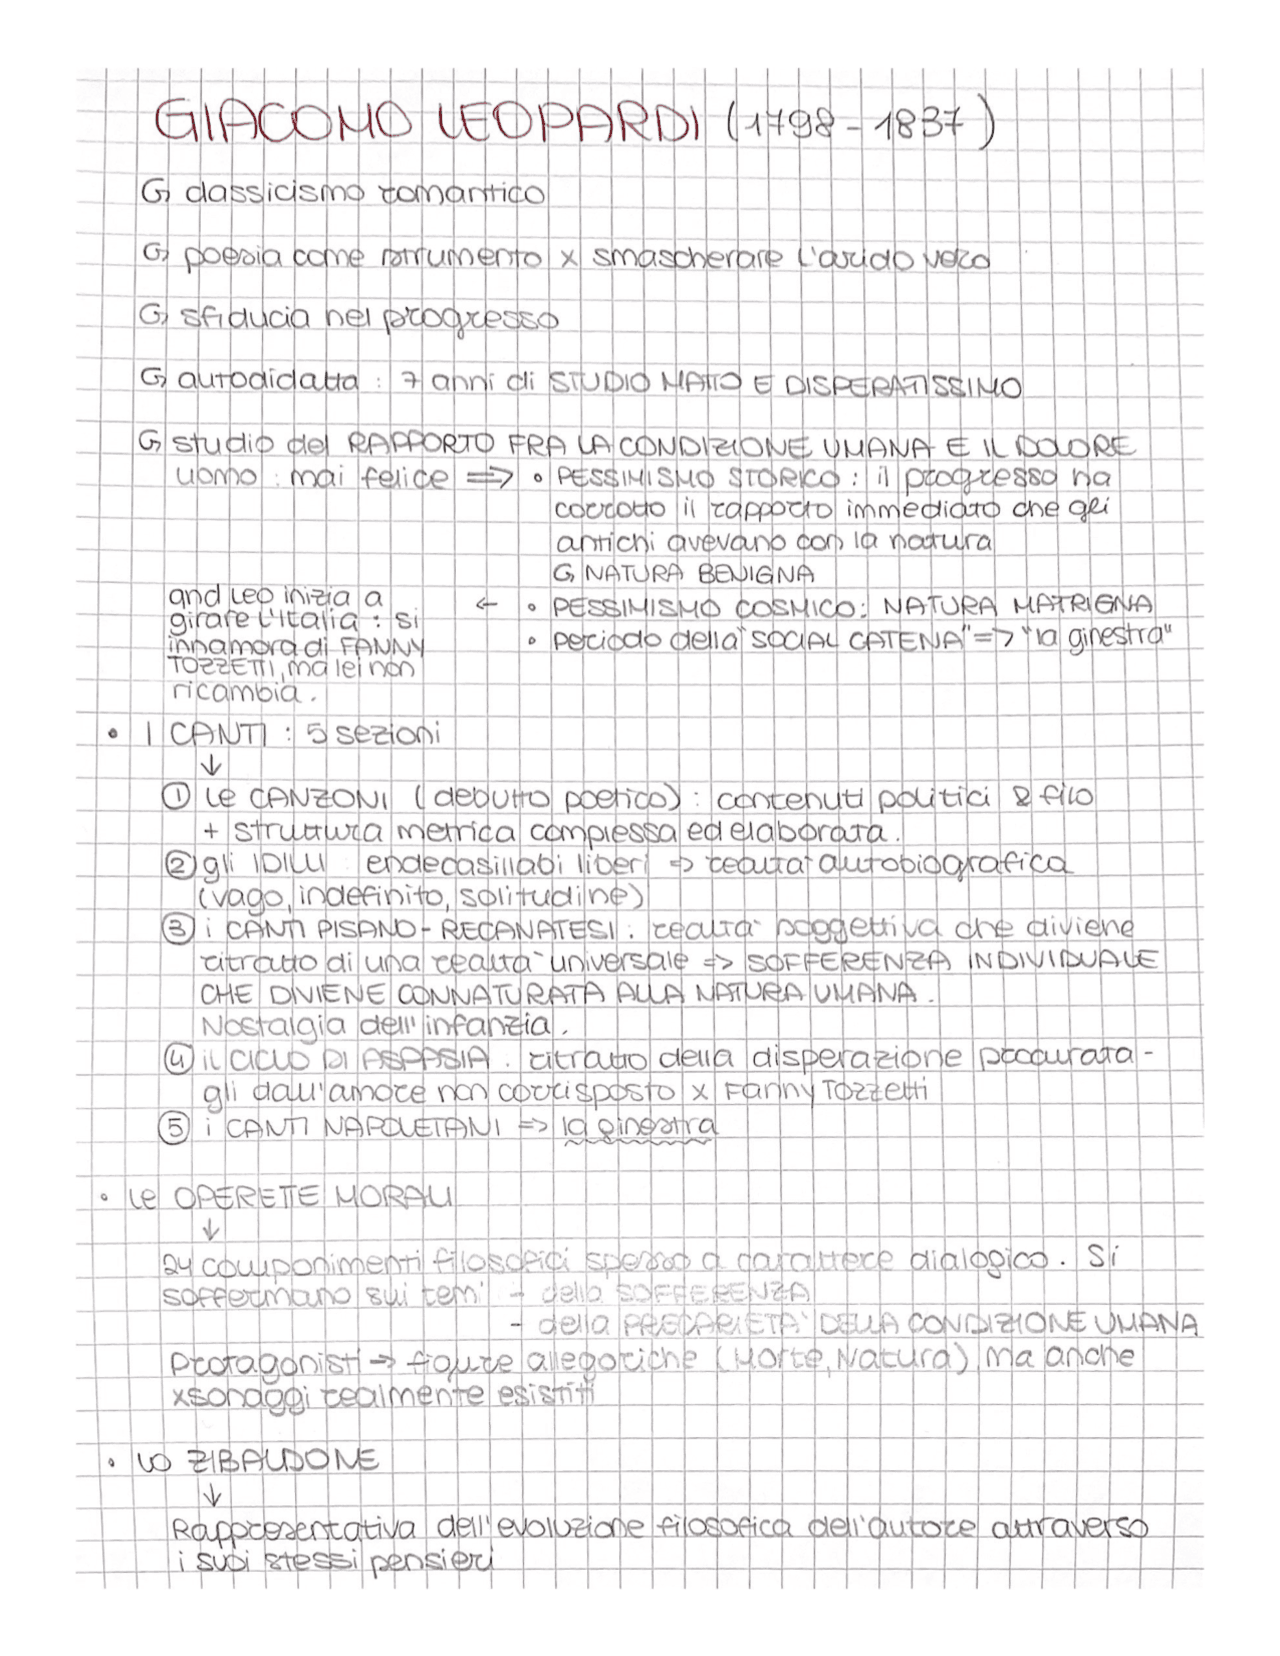 GIACOMO LEOPARDI (1798-1837)
↳ classicismo romantico
↳ poesia come strumento x smascherare l'arido vero
↳ sfiducia nel progresso
↳ autodidatta : 7 anni di STUDIO MATTO E DISPERATISSIMO
↳ studio del RAPPORTO FRA LA CONDIZIONE UMANA E IL DOLORE
uomo : mai felice => • PESSIMISMO STORICO : il progresso ha
corrotto il rapporto immediato che gli
antichi avevano con la natura
↳ NATURA BENIGNA
← • PESSIMISMO COSMICO : NATURA MATRIGNA
• periodo della "SOCIAL CATENA" => "la ginestra"
qnd Leo inizia a
girare l'Italia : si
innamora di FANNY
TOZZETTI, ma lei non
ricambia.
• I CANTI : 5 sezioni
↓
① Le CANZONI (debutto poetico) : contenuti politici & filo
+ struttura metrica complessa ed elaborata.
② gli IDILLI : endecasillabi liberi => realtà autobiografica
(vago, indefinito, solitudine)
③ i CANTI PISANO-RECANATESI : realtà soggettiva che diviene
ritratto di una realtà universale => SOFFERENZA INDIVIDUALE
CHE DIVIENE CONNATURATA ALLA NATURA UMANA.
Nostalgia dell'infanzia.
④ iL CICLO DI ASPASIA : ritratto della disperazione procurata-
gli dall'amore non corrisposto x Fanny Tozzetti
⑤ i CANTI NAPOLETANI => la ginestra
• Le OPERETE MORALI
↓
24 componimenti filosofici spesso a carattere dialogico. Si
soffermano sui temi - della SOFFERENZA
- della PRECARIETA' DELLA CONDIZIONE UMANA
Protagonisti -> figure allegoriche (Morte, Natura) ma anche
xsonaggi realmente esistiti
• LO ZIBALDONE
↓
Rappresentativa dell'evoluzione filosofica dell'autore attraverso
i suoi stessi pensieri